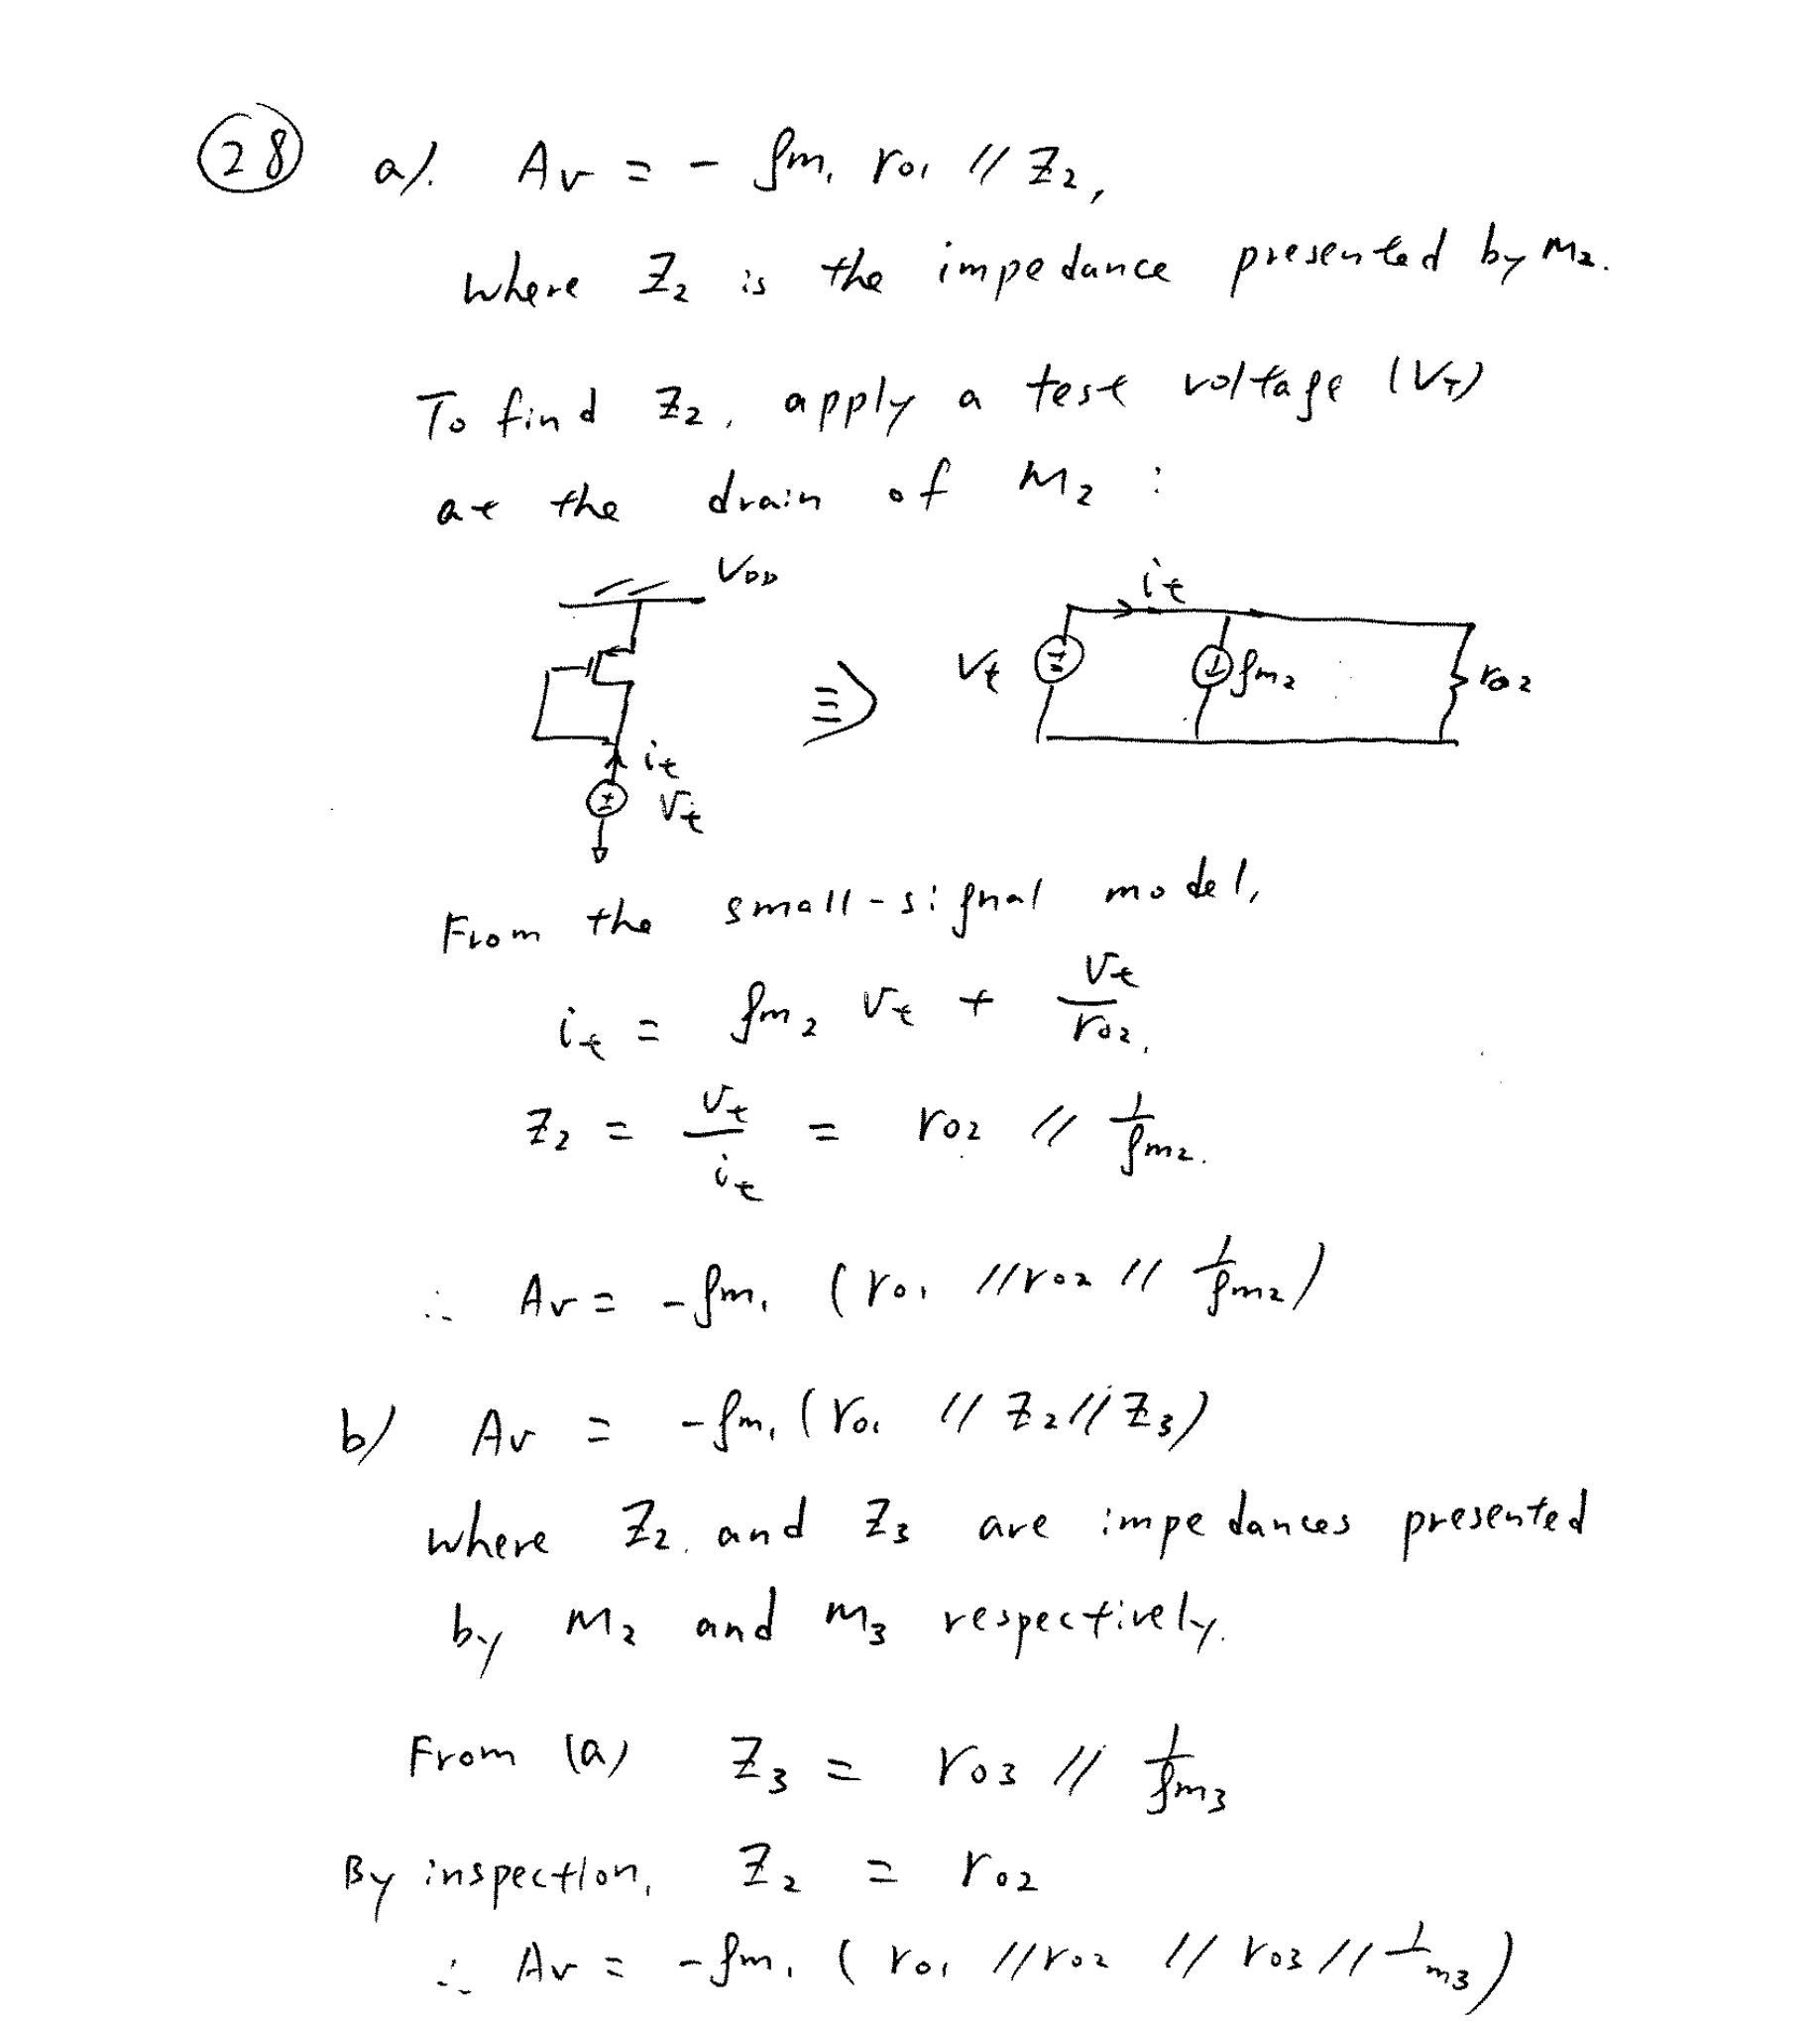 28 a). Av = - gm1 ro1 // Z2,
where Z2 is the impedance presented by M2.
To find Z2, apply a test voltage (VT)
at the drain of M2 :
VDD
it
Vt
≡>
it
Vt
gm2
ro2
From the small-signal model,
it = gm2 Vt + Vt/ro2,
Z2 = Vt/it = ro2 // 1/gm2.
∴ Av = -gm1 (ro1 // ro2 // 1/gm2)
b) Av = -gm1 (ro1 // Z2 // Z3)
where Z2 and Z3 are impedances presented
by M2 and M3 respectively.
From (a) Z3 = ro3 // 1/gm3
By inspection, Z2 = ro2
∴ Av = -gm1 (ro1 // ro2 // ro3 // 1/m3)